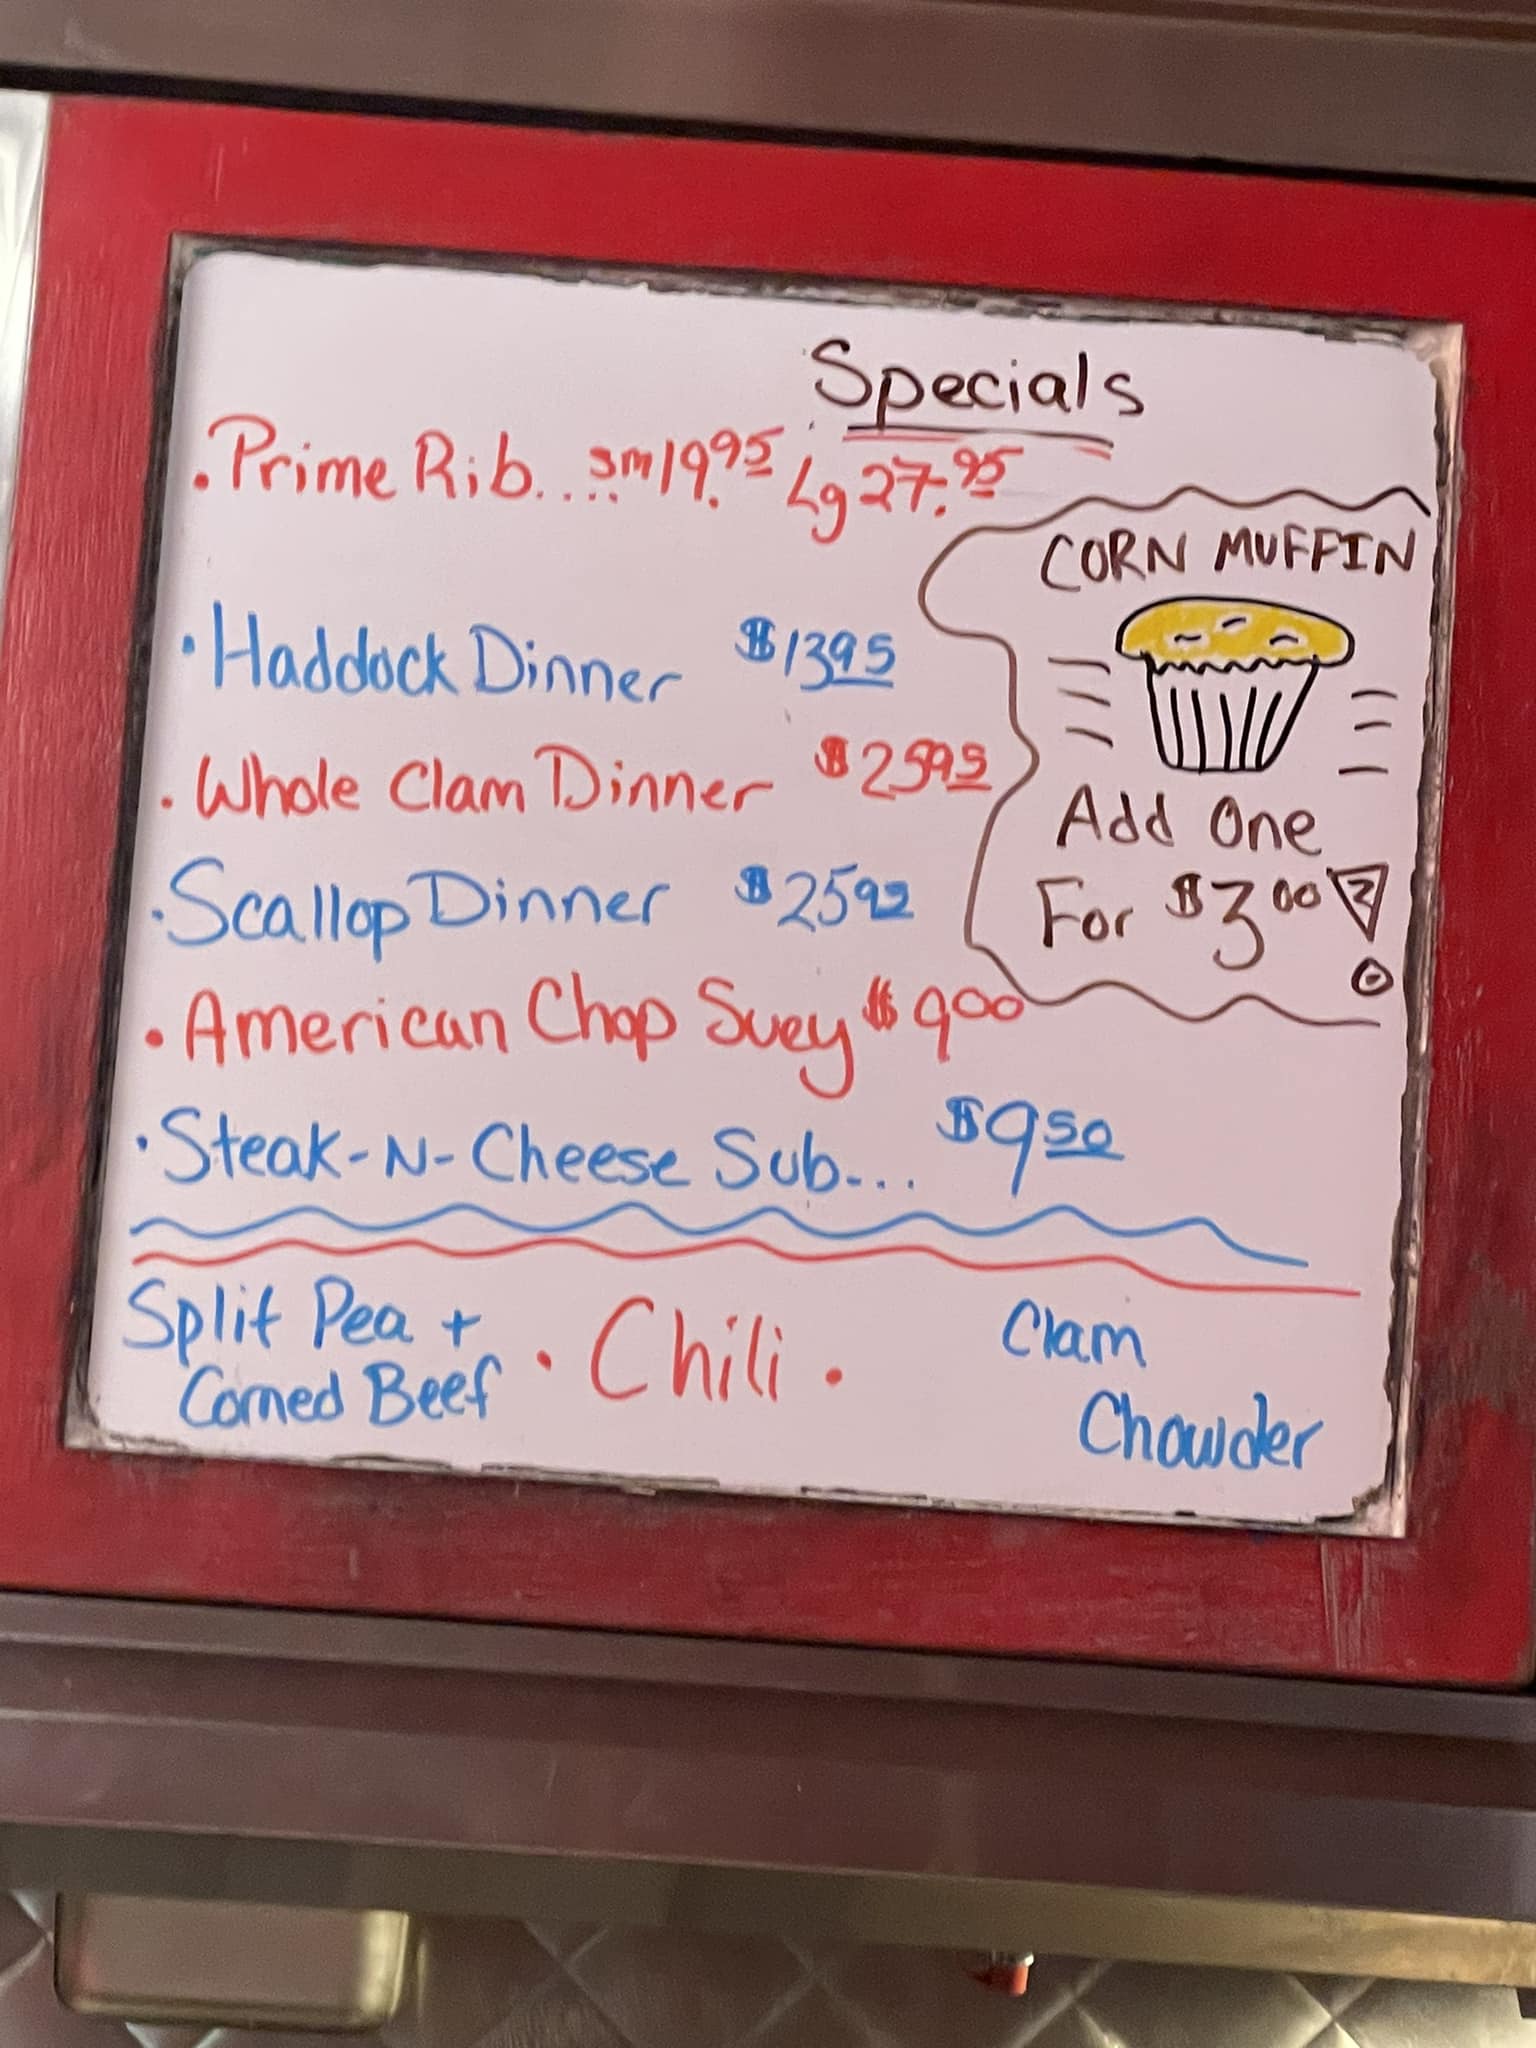 Specials
. Prime Rib....... sm 19.95 Lg 27.95
CORN MUFFIN
Add One
For $3.00
· Haddock Dinner $1395
. Whole Clam Dinner $2595
. Scallop Dinner $25
· American Chop Suey $900
· Steak-N-Cheese Sub... $950
Split Pea + Corned Beef · Chili · Clam Chowder